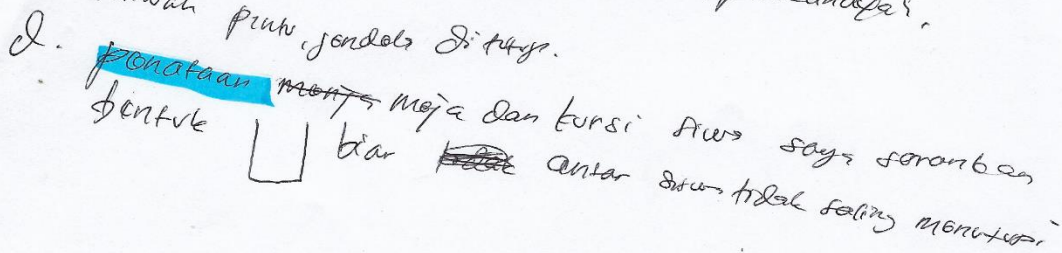 pintu, jendela ditutup.
d. penataan meja dan kursi siswa saya sarankan
bentuk biar antar siswa tidak saling menutupi